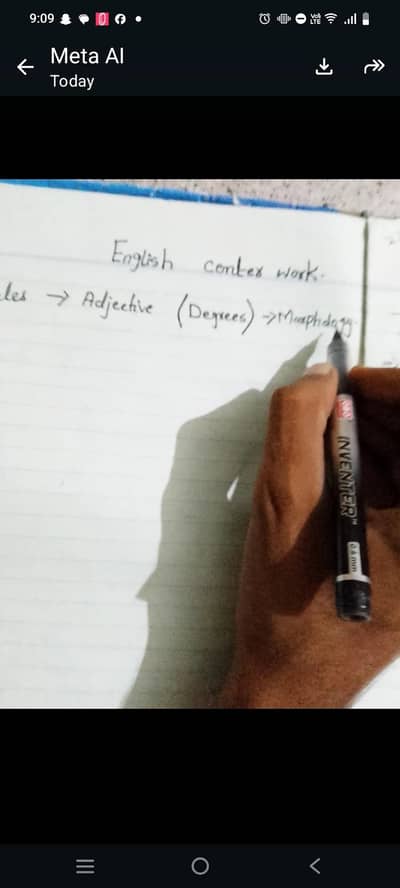 9:09
Vo) LTE
Meta AI
Today
English contex work.
les → Adjective (Degrees) → Morphology
INVENTER™ 0.6 mm